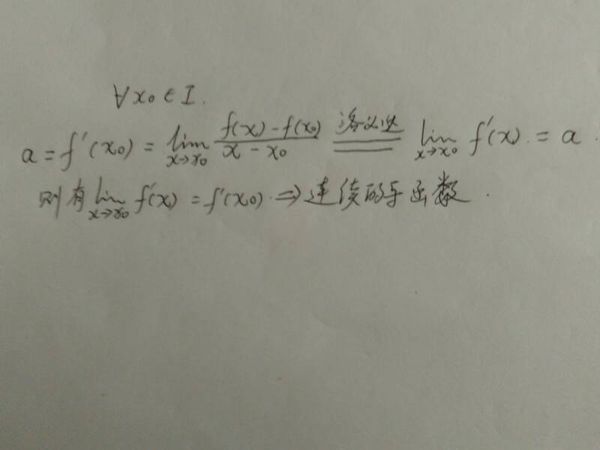 ∀x₀∈I.
a = f'(x₀) = lim x→x₀ f(x)-f(x₀) / x-x₀ 洛必达 ═ lim x→x₀ f'(x) = a.
则有 lim x→x₀ f'(x) = f'(x₀) ⇒ 连续的导函数.